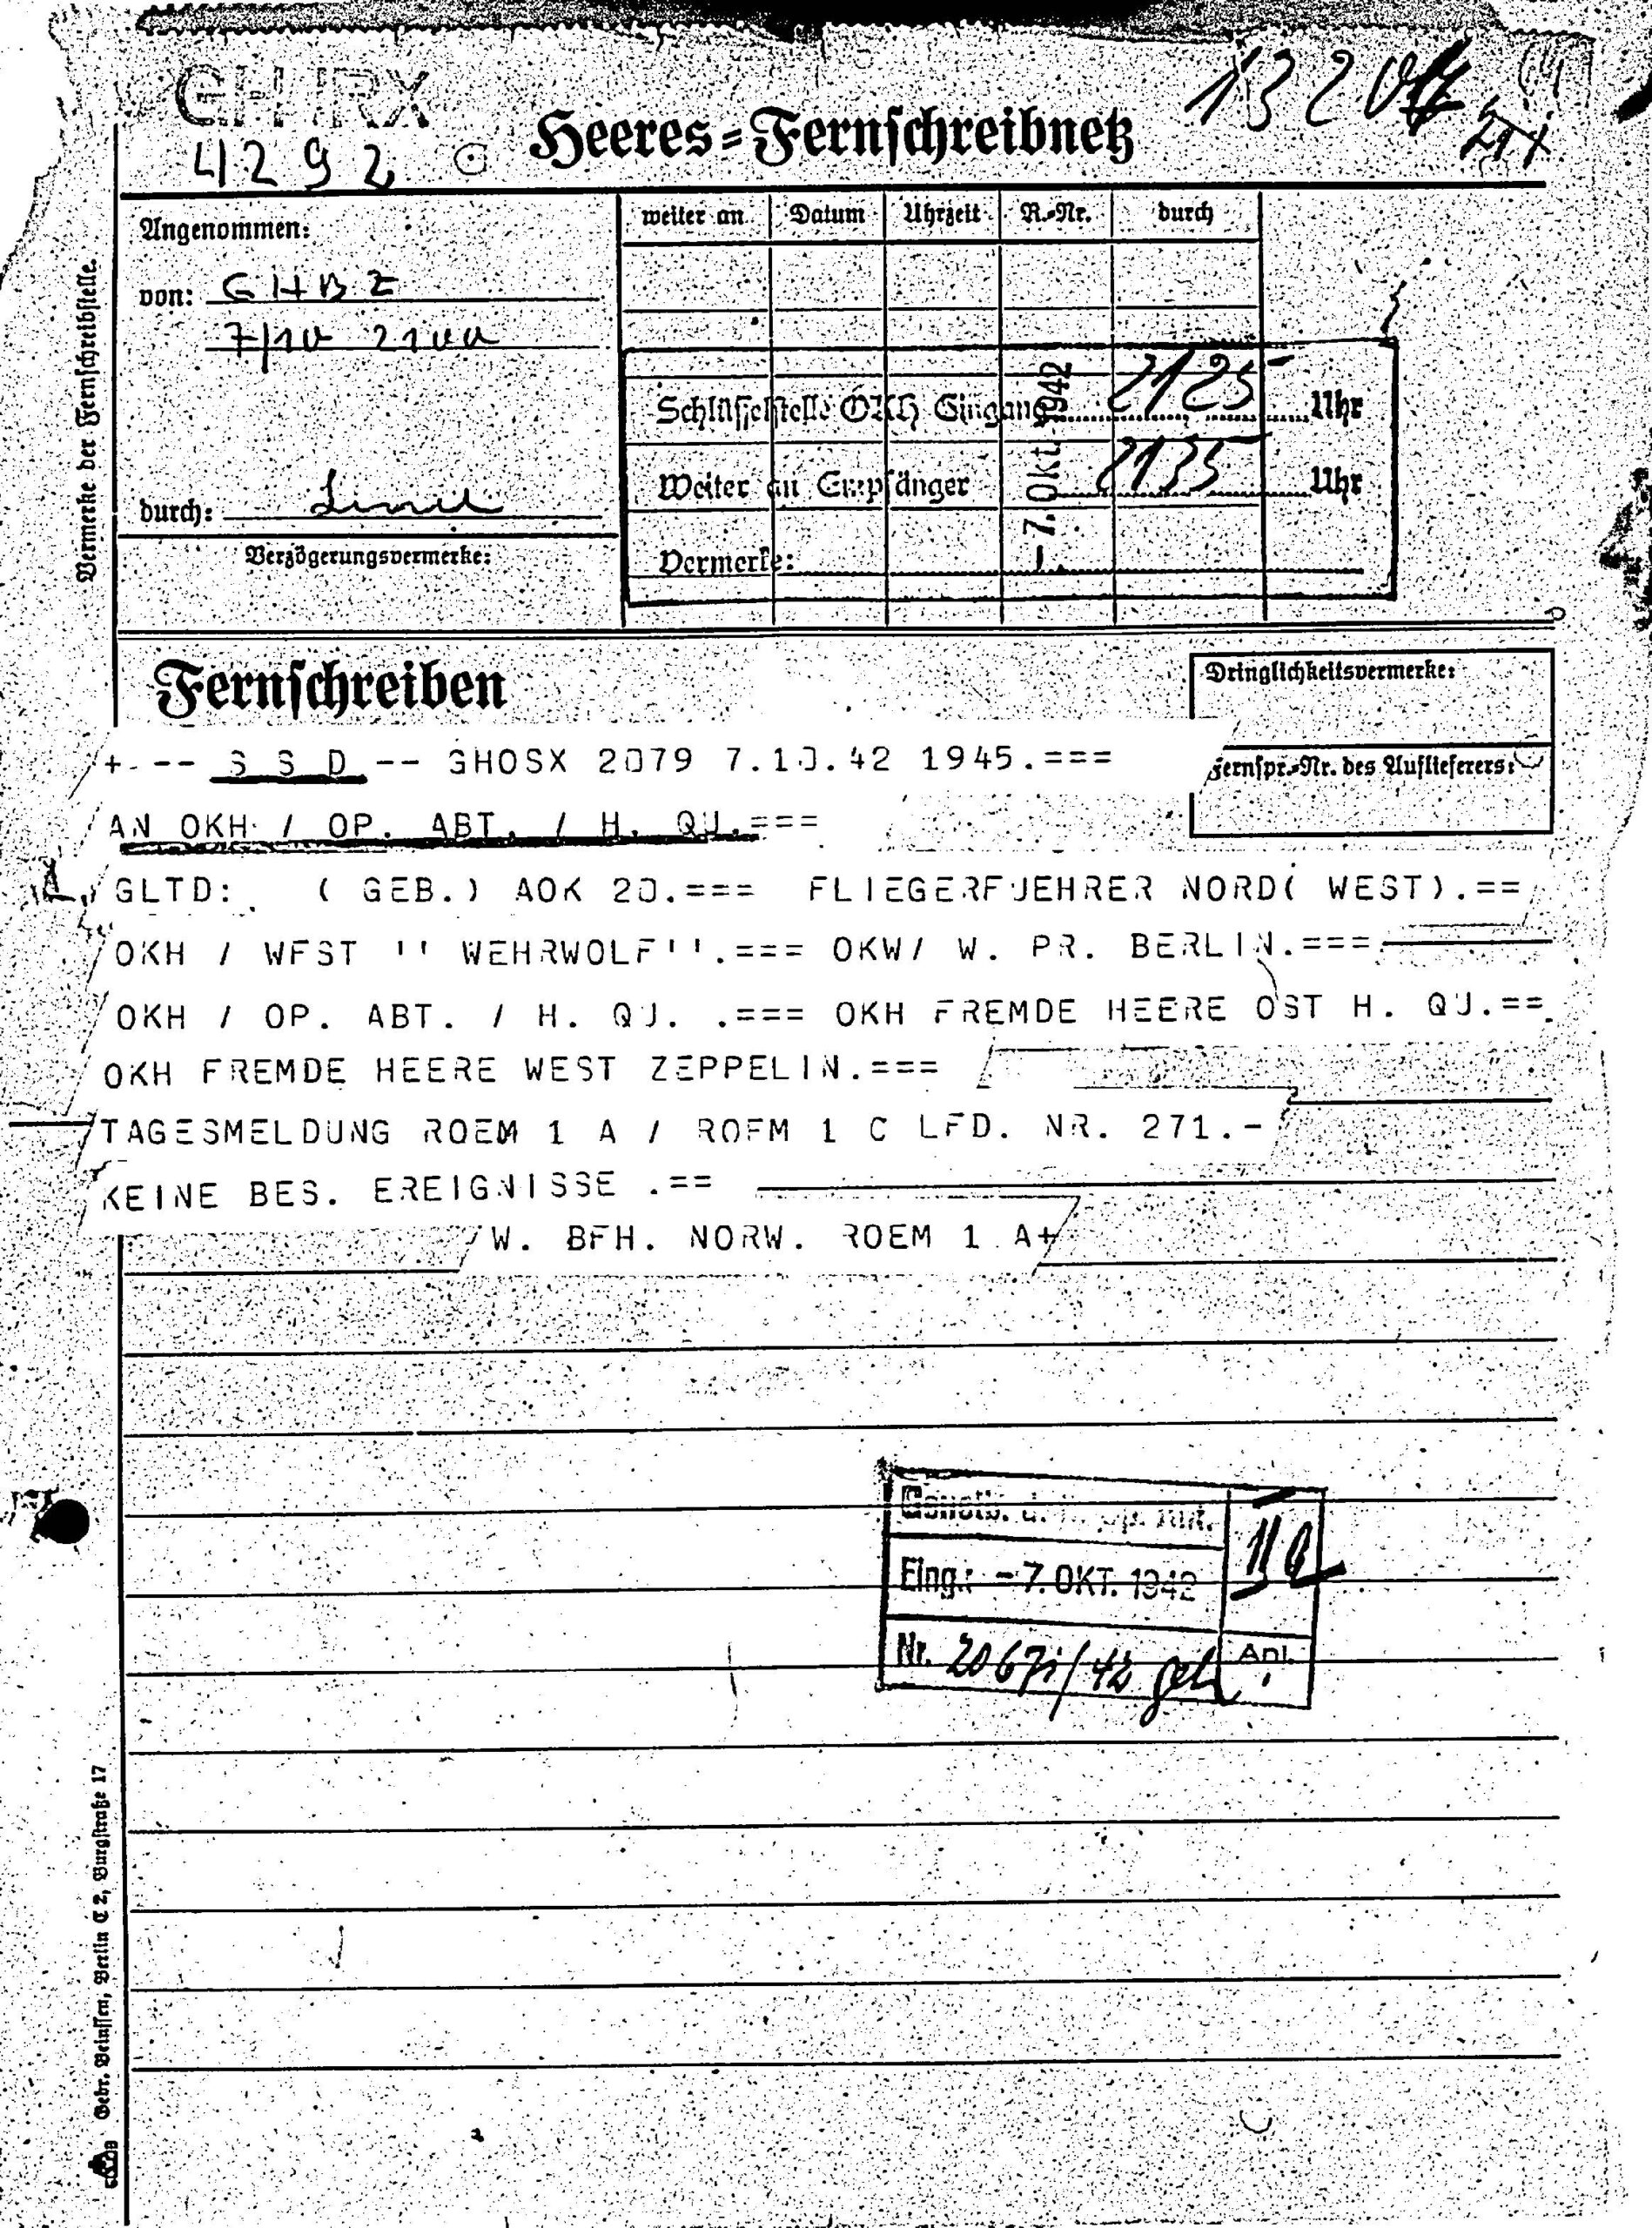 GHIRX
4292
Heeres-Fernschreibnetz
Vermerke der Fernschreibstelle.
Angenommen:
von: GHBZ
7/10 2100
durch:
Verzögerungsvermerke:
weiter an Datum Uhrzeit R.-Nr. durch
Schlüsselstelle OKH Eingang 2125 Uhr
Weiter an Empfänger 2135 Uhr
- 7. Okt. 1942
Vermerke:
Fernschreiben
Dringlichkeitsvermerke:
Fernspr.-Nr. des Auflieferers:
+ -- S S D -- GHOSX 2079 7.10.42 1945.===
AN OKH / OP. ABT. / H. QU.===
GLTD: ( GEB.) AOK 20.=== FLIEGERFUEHRER NORD( WEST).==
OKH / WFST '' WEHRWOLF''.=== OKW/ W. PR. BERLIN.===
OKH / OP. ABT. / H. QU. .=== OKH FREMDE HEERE OST H. QU.==
OKH FREMDE HEERE WEST ZEPPELIN.===
TAGESMELDUNG ROEM 1 A / ROEM 1 C LFD. NR. 271.-
KEINE BES. EREIGNISSE .==
W. BFH. NORW. ROEM 1 A+
Genstb. d. H. Op. Abt.
Eing.: - 7. OKT. 1942
Nr. /42 Anl.
Gebr. Beinssen, Berlin C 2, Burgstraße 17